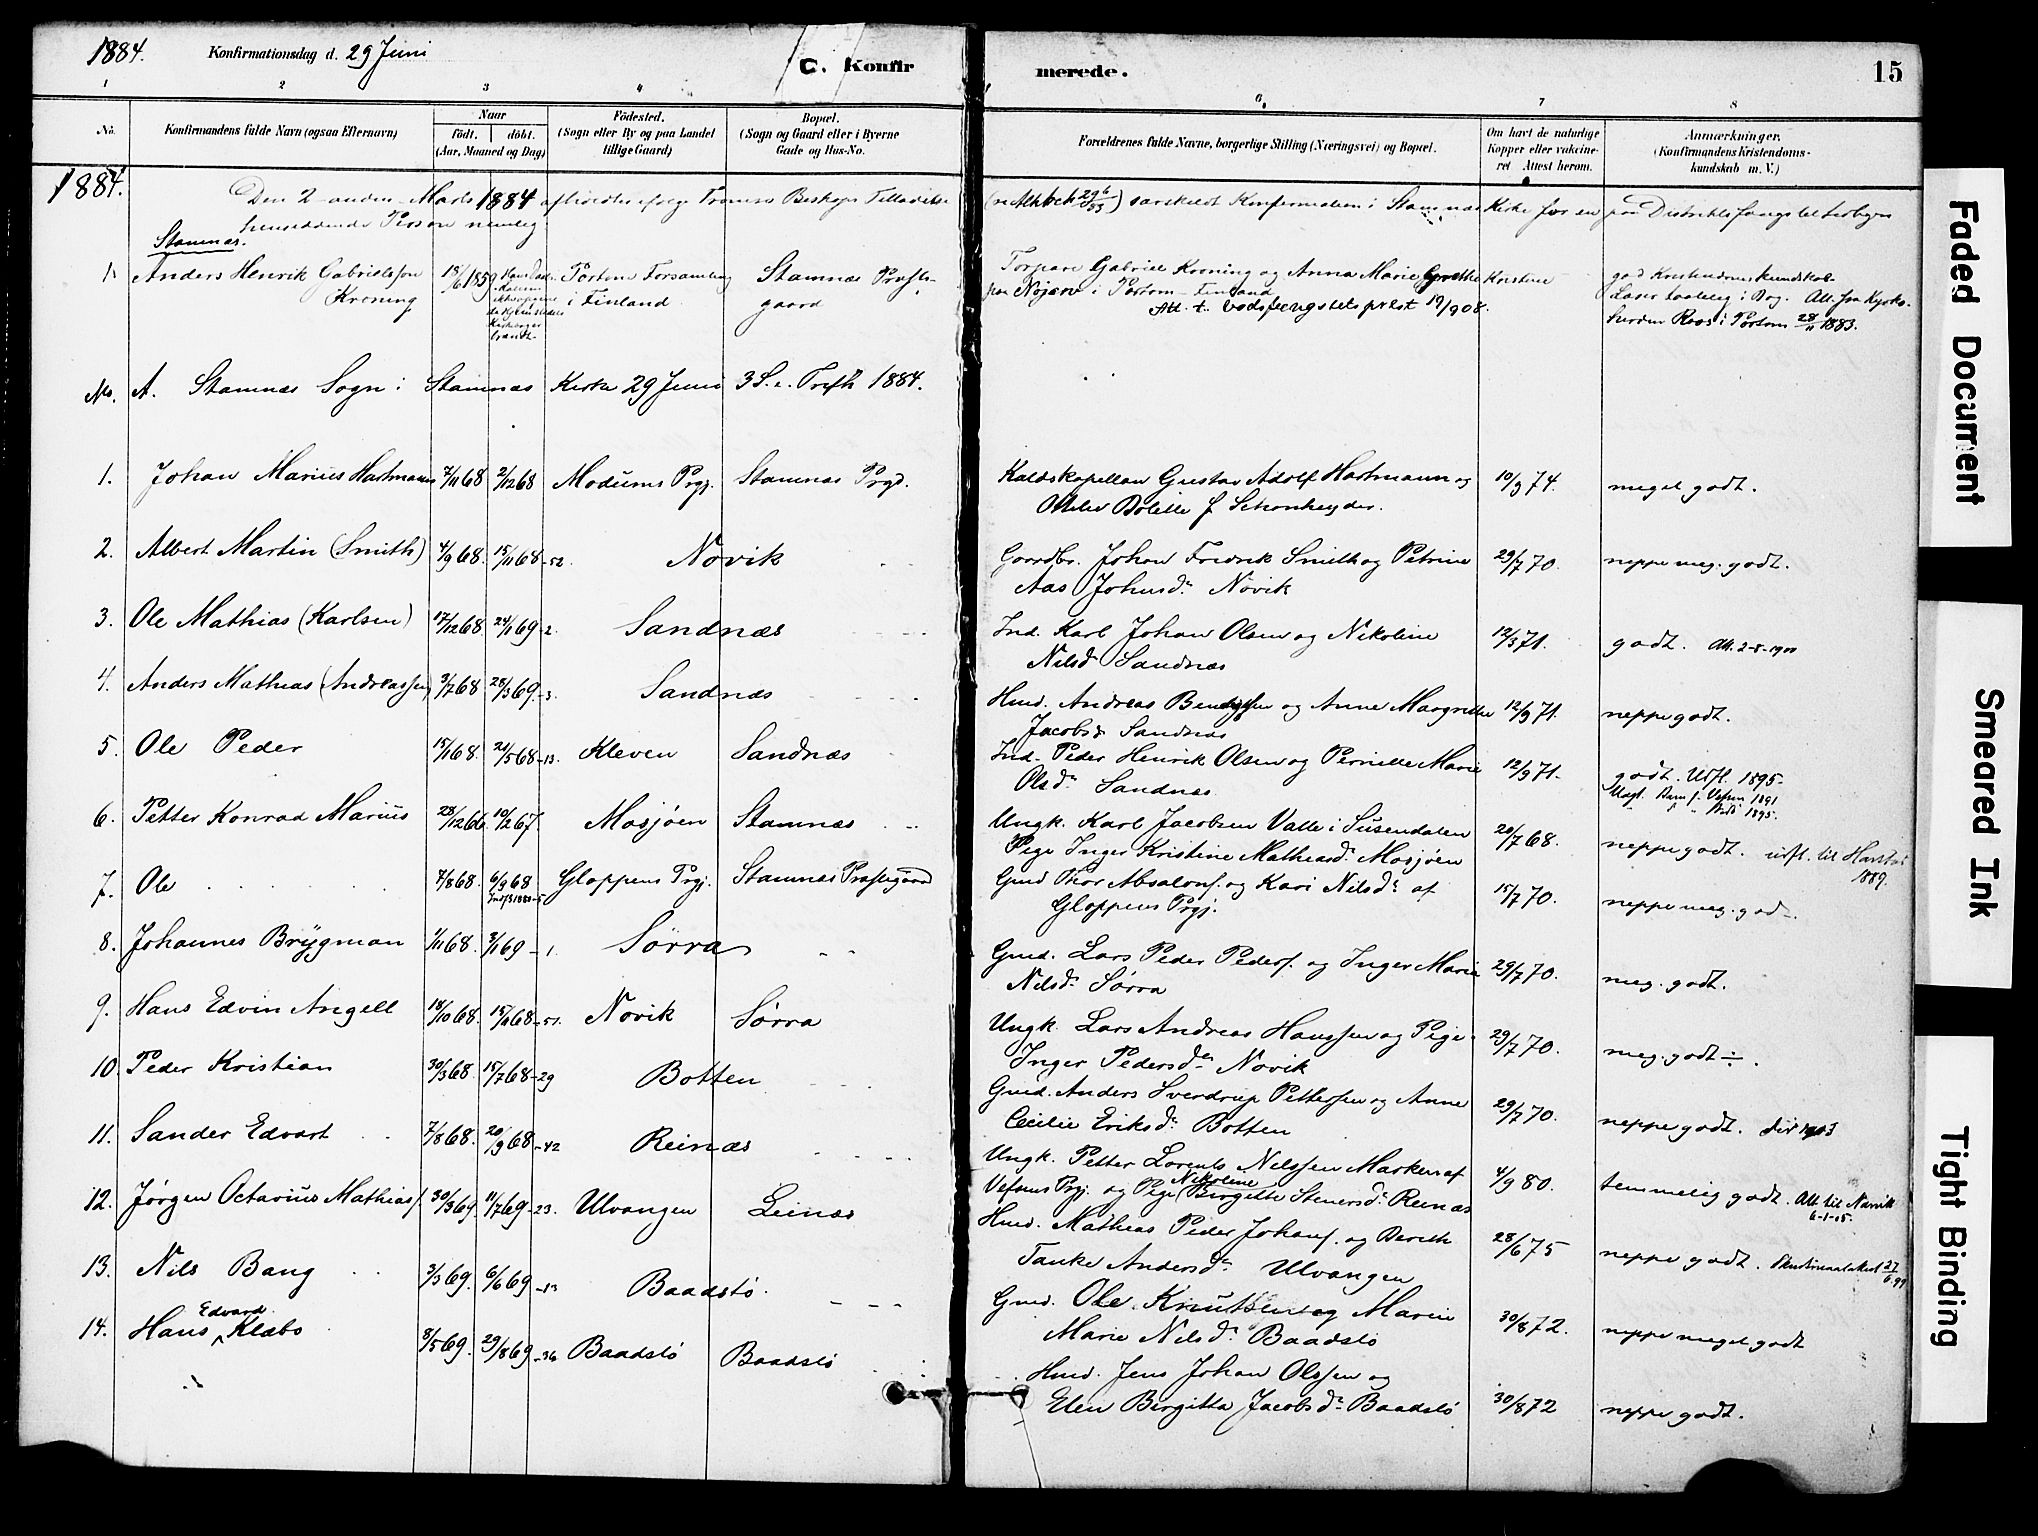 1884. Konfirmationsdag d. 29 Juni
C. Konfir merede. 15
1 2 3 4 5 6. 7 8
No. Konfirmandens fulde Navn (ogsaa Efternavn) Naar født. døbt. (Aar, Maaned og Dag)
Fødested. (Sogn eller By og paa Landet tillige Gaard)
Bopæl. (Sogn og Gaard eller i Byerne Gade og Hus-No.
Forældrenes fulde Navne, borgerlige Stilling (Næringsvei) og Bopæl.
Om havt de naturlige Kopper eller vakcineret Attest herom.
Anmærkninger. (Konfirmandens Kristendomskundskab m. V.)
1884. Den 2 anden Marts 1884 afholdtes ifølge Tromsø Biskops Tilladelse særskildt Konfirmation i Stamnæs Kirke for en paa Distriktsfængslet
henseddende Person nemlig
Stamnæs.
1. Anders Henrik Gabrielsson Kroning 1859 Portom Forsamling i Finland Stamnæs Præstegaard
Torpare Gabriel Kroning og Anna Marie Grethe Kristine
paa Nojærv i Portom Finland
Att. t. bodsfengstets prest 19/908.
god Kristendomskundskab.
Læser taalelig i Bog. Att. fra Kyrkoherden Roos i Portom 28/11 1883.
No. A. Stamnæs Sogn i Stamnæs Kirke 29 Juni 3 S. e. Trefh 1884.
1. Johan Marius Hartmann 7/11 68 2/12 68 Modums Prgj. Stamnæs Prgd.
Kaldskapellan Gustav Adolf Hartmann og
Bolette f Schønheyder. 10/9 74. meget godt.
2. Albert Martin (Smith) 4/9 68. 15/11 68-52. Novik
Gaardbr. Johan Fredrik Smith og Petrine
Aas Johnsd. Novik 29/7 70. neppe meg. godt.
3. Ole Mathias (Karlsen) 17/12 68 24/1 69-2. Sandnæs
Ind. Karl Johan Olsen og Nikoline
Nilsd Sandnæs 12/3 71. godt. Att. 2-8-1900
4. Anders Mathias (Andreassen) 9/7 68 28/3 69.-3. Sandnæs
Hmd. Andreas og Anne Margrethe
Jacobsd Sandnæs 12/9 71. neppe godt.
5. Ole Peder 15/1 68. 21/5 68-13. Kleven Sandnæs
Ind. Peder Henrik Olsen og Pernille Marie
Olsd. Sandnæs 12/9 71. godt. Utfl. 1895.
Uægt. Barn f. Vefsen 1891
1895.
6. Petter Konrad Marius 28/12 66 10/2 67. Mosjøen Stamnæs
Ungk. Karl Jacobsen Valle i Susendalen
Pige Inger Kristine Matheasd. Mosjøen 20/7 68. neppe godt. utfl. til Harstad 1889.
7. Ole 7/8 68. 6/9 68 Gloppens Prgj. Stamnæs Præstegaard
Gmd Thor Absalonf. og Kari Nilsd. af
Gloppens Prgj. 15/7 70. neppe meg. godt.
8. Johannes Brygman 1/11 68. 3/1 69-1. Sørra
Gmd. Lars Peder Pedersf. og Inger Marie
Nilsd. Sørra 29/7 70. meg. godt.
9. Hans Edvin Angell 18/10 68. 15/11 68-51. Novik Sørra
Ungk. Lars Andreas Hanssen og Pige
Inger Pedersd. Novik 29/7 70. meg. godt ÷.
10. Peder Kristian 30/3 68. 15/7 68-29 Botten
Gmd. Anders Sverdrup Pettersen og Anne
Cecilie Eriksd. Botten 29/7 70. neppe godt. dir 1903
11. Sander Edvart 7/8 68. 20/9 68-42 Reinæs
Ungk. Petter Lorents Nilssen Marken af
Vefsens Prgj. og Pige Nikoline Birgitte Stenersd. Reinæs 4/9 80. temmelig godt. Att. til Narvik 6-1-05.
12. Jørgen Octavius Mathiasf. 30/3 69. 11/7 69-23. Ulvangen Leinæs
Hmd. Mathias Peder Johanf. og Bereth
Tanke Andersd. Ulvangen 28/6 75 neppe godt.
13. Nils Bang 3/3 69. 6/6 69-13 Baadstø
Gmd. Ole Knutsen og Maren
Marie Nilsd. Baadstø 30/8 72. neppe meget godt
14. Hans Edvard Klæbo 8/5 69. 29/8 69-36 Baadstø Baadstø
Hmd. Jens Johan Olssen og
Elen Birgitta Jacobsd. Baadstø 30/8 72 neppe godt.
Faded Document
Smeared Ink
Tight Binding